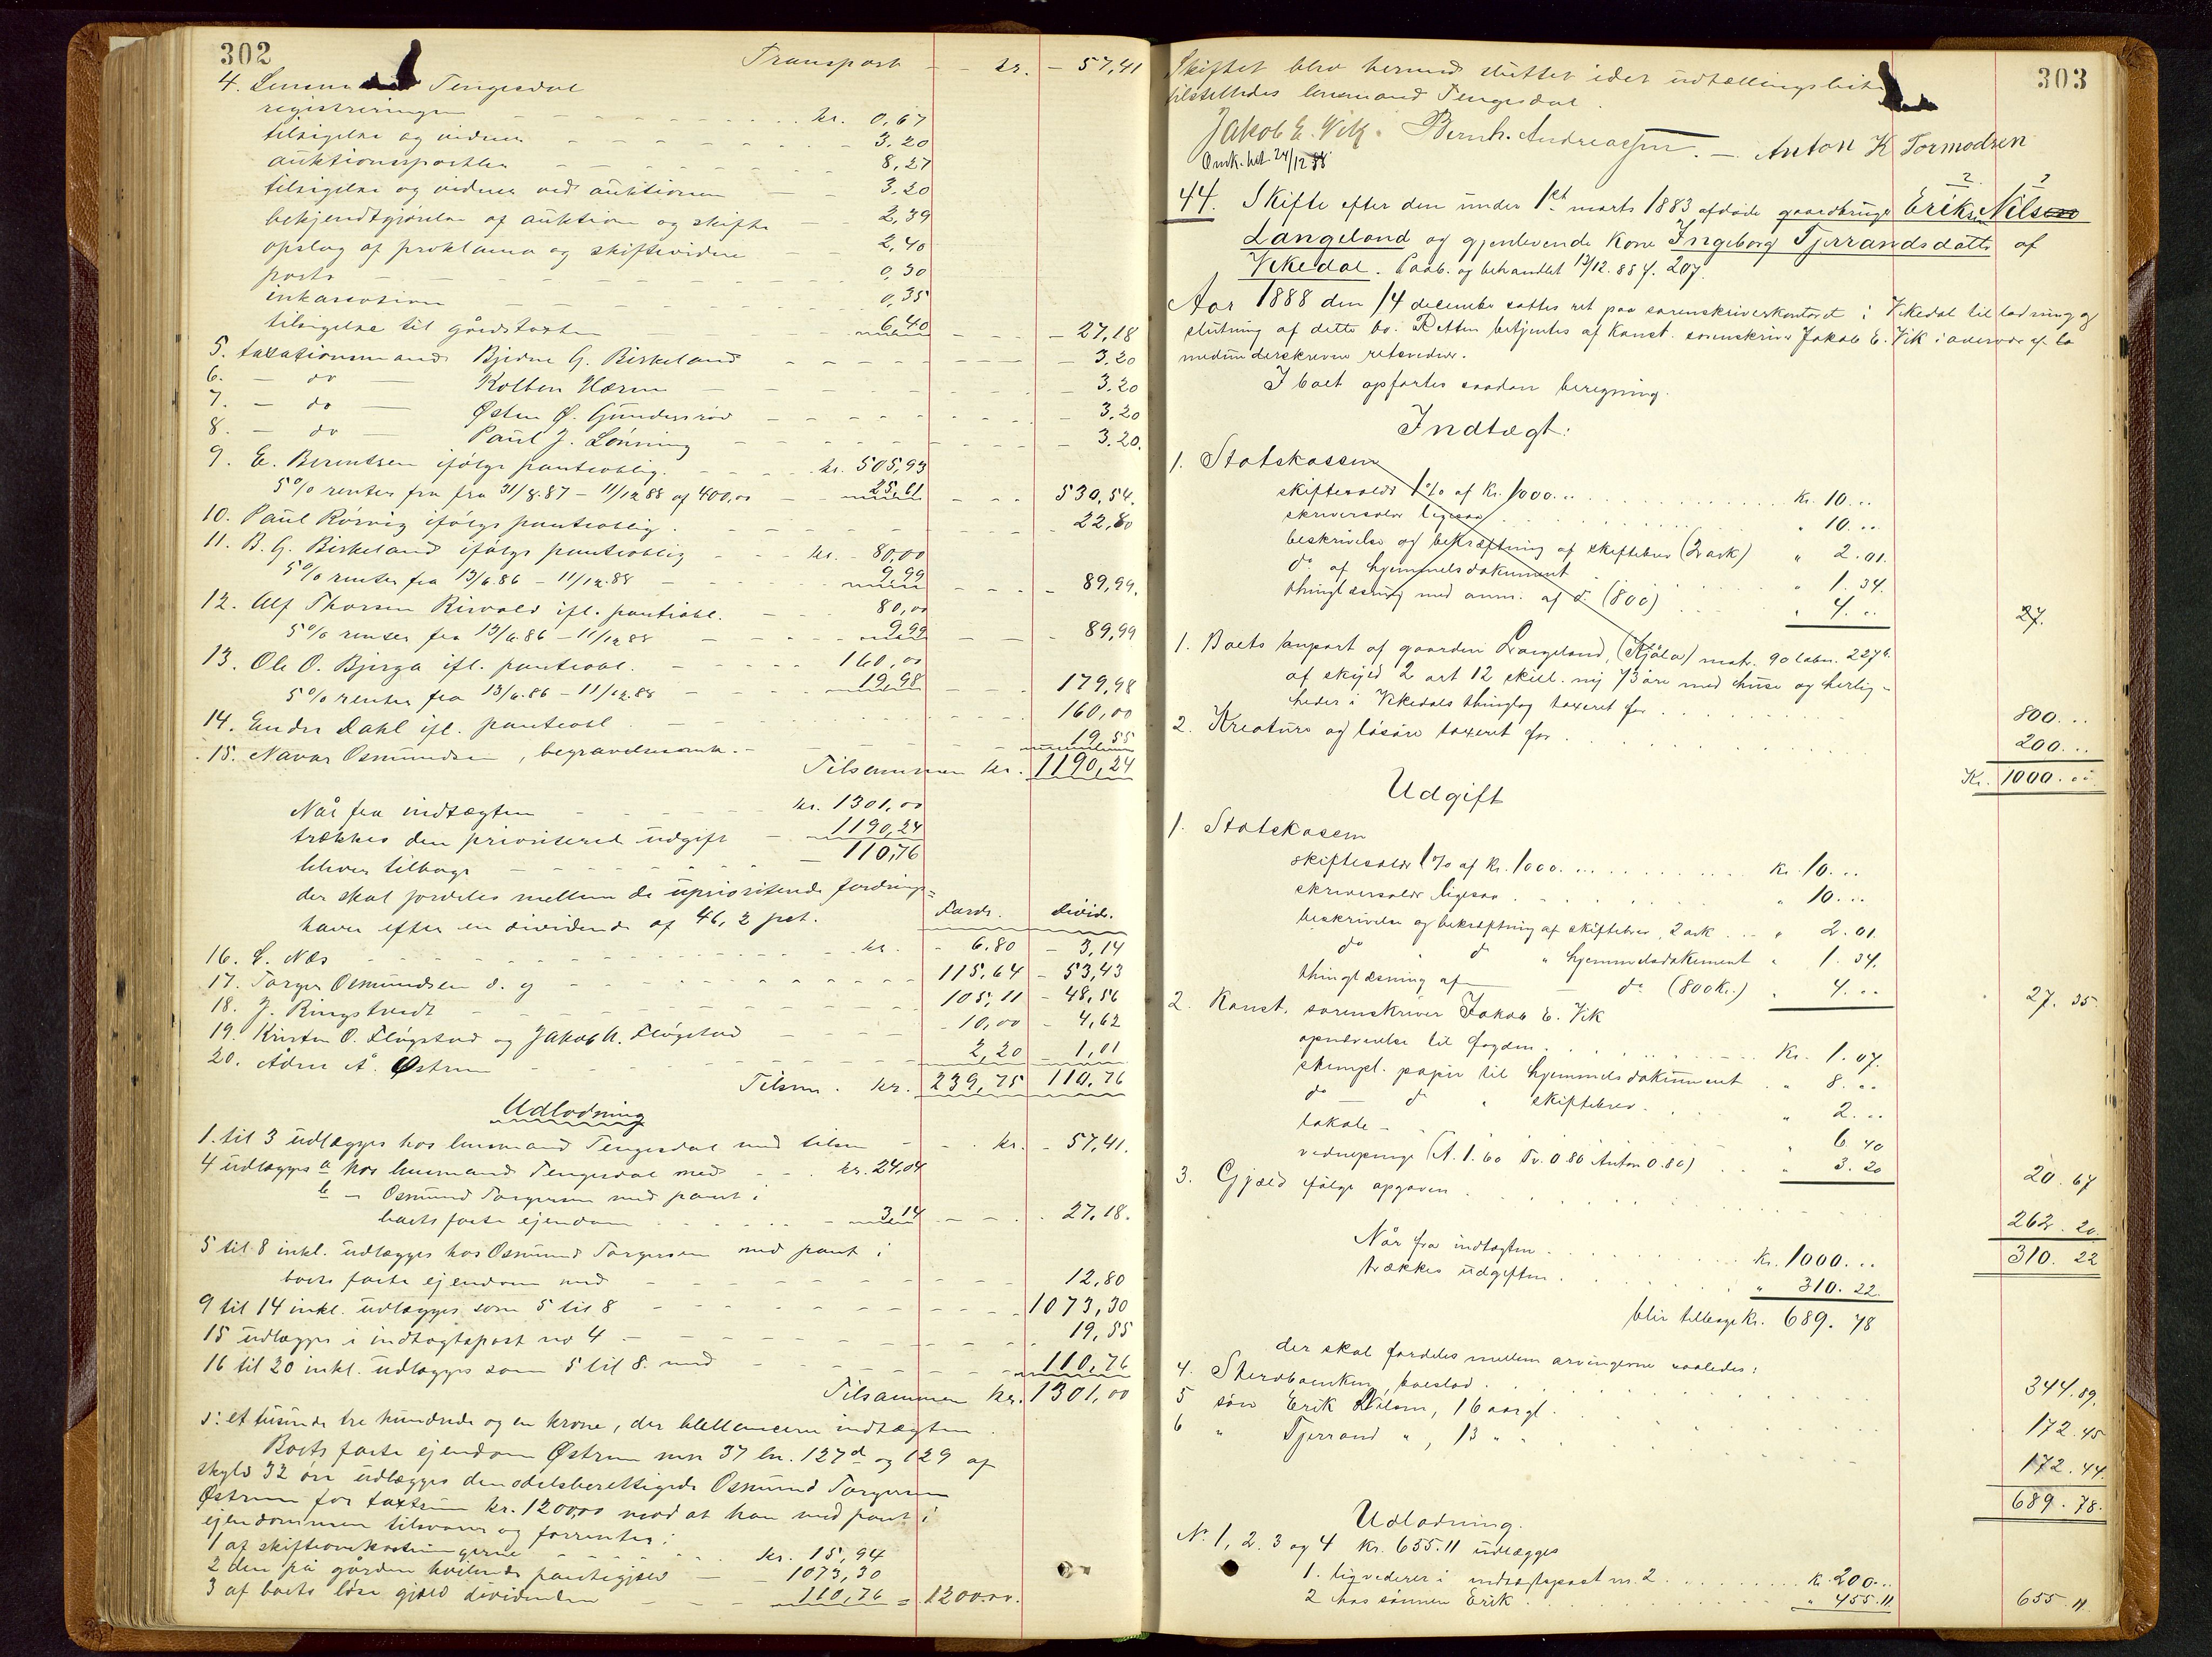 302
Transport kr. 57,41
4. Tengesdal
registreringen kr. 0,67
tilsigelse og vidner 3,20
auktionspostler 8,27
tilsigelse og vidner ved auktionen 3,20
bekjendtgjørelse af auktion og skifte 2,39
opslag af proklama og skiftevidne 2,40
porto 0,30
inkassation 0,35
tilsigelse til gårdstaxten 6,40 27,18
5. taxationsmand Bjedne G. Birkeland 3.20
6. — do — Kolben 3.20
7. — do — Østen Ø. Gundersrød 3.20
8. — do — Paul J. Lønning 3.20.
9. E. Berentsen ifølge panteoblig. kr. 505,93
5% renter fra fra 31/8.87 – 11/12 88 af 400,00 25,61 530,54.
10. Paul Rørvig ifølge panteoblig. 22,80
11. B. G. Birkeland ifølge panteoblig kr. 80,00
5% renter fra 13/6.86 – 11/12.88 9,99 89,99.
12. Alf Thorsen Risvold ifl. panteobl. 80,00
5% renter fra 13/6.86 – 11/12 88 9,99 89,99
13. Ole O. Bjerga ifl. panteobl. 160,00
5% renter fra 13/6.86 – 11/12.88 19,98 179,98
14. Endre Dahl ifl. panteobl. 160,00
15. Navar Osmundsen, begravelsesomk. 19,55
Tilsammen kr. 1190,24
Når fra indtægten kr. 1301,00
trækkes den prioriterede udgift 1190,24
bliver tilbage 110,76
der skal fordeles mellem de uprioriterede fordrings=
havere efter en dividende af 46,2 pct. Fordr. Divide.
16. L. Næs kr. 6.80 3,14
17. Torger Osmundsen d. y 115,64 53,43
18. J. Ringstvedt 105,11 48,56
19. Kristen O. Fløgstad og Jakob A. Fløgstad 10,00 4,62
20. Ådne A. Østrem 2,20 1,01
Tilsm. kr. 239,75 110,76
Udlodning
1. til 3 udlægges hos lensmand Tengesdal med tilsm kr. 57,41.
4 udlægges a hos lensmand Tengesdal med kr. 24,04
b — Osmund Torgersen med pant i
boets faste ejendom 3,14 27,18.
5 til 8 inkl. udlægges hos Osmund Torgersen med pant i
boets faste ejendom med 12,80
9 til 14 inkl. udlægges som 5 til 8 1073,30
15 udlægges i indtægtspost no 4 19,55
16 til 20 inkl. udlægges som 5 til 8. med 110,76
Tilsammen kr. 1301,00
ɔ: et tusinde tre hundrede og en krone, der balancerer indtægten.
Boets faste ejendom Østrem mn 37 ln. 127d og 129 af
skyld 32 øre udlægges den odelsberettigede Osmund Torgersen
Østrem for taxtsum kr. 1200,00 mod at han med pant i
ejendommen tilsvarer og forrenter:
1 af skifteomkostningerne kr. 15,94
2 den på gården heftende pantegjæld 1073,30
3 af boets løse gjæld dividenden 110,76 = 1200.00.
303
Skiftet blev hermed sluttet idet udtællingsliste
tilstilledes lensmand Tengesdal.
Jakob E. Vik. Bernh. Andreassen. — Anton K Tormodsen
Omk. bet. 24/12 88
44. Skifte efter den under 1st marts 1883 afdøde gaardbruger Erik Nilsen
Langeland og gjenlevende Kone Ingeborg Tjerrandsdatter af
Vikedal. Paab. og behandlet 13/12.88 f. 207.
Aar 1888 den 14 december sattes ret paa sorenskriverkontoret i Vikedal til lodning og
slutning af dette bo. Retten betjentes af konst. sorenskriver Jakob E. Vik i overvær af to
medunderskrevne retsvidner.
I boet opførtes saadan beregning.
Indtægt:
1. Statskassen
skiftesaldr 1% af Kr. 1000... Kr. 10...
skriversaldr ligesaa " 10...
beskrivelse og bekræftning af skiftebrev (2 ark) " 2.01.
do af hjemmelsdokument " 1.34.
thinglæsning med anm. af do (800) " 4... 27.
1. Boets anpart af gaarden Langeland, (Kjøla) matr. 90 løbn. 227b.
af skyld 2 ort 12 skill. ny 73 øre med huse og herlig-
heder i Vikedals thinglag taxeret for 800...
2. Kreature og løsøre taxeret for 200...
Kr. 1000.00
Udgift
1. Statskassen
skiftesaldr 1% af Kr. 1000... Kr. 10...
skriversaldr ligesaa " 10...
beskrivelse og bekræftning af skiftebrev, 2 ark " 2.01.
do do " hjemmelsdokument " 1.34.
thinglæsning af — do (800 Kr.) " 4... 27.35
2. Konst. sorenskriver Jakob E. Vik
opnævnelse til fogden Kr. 1.07.
stempl. papir til hjemmelsdokument " 8...
do — do " skiftebrev " 2...
lokale — 6 40
vidnepenge (A. 1.60 Tv. 0.80 Anton 0.80) " 3.20 20.67
3. Gjæld ifølge opgaven 262.20.
310.22
Når fra indtægten Kr. 1000...
trækkes udgiften " 310.22.
blir tilbage Kr. 689.78
der skal fordeles mellem arvingerne saaledes:
4. Sterbboenken, boeslod 344.89.
5 søn Erik Nilsen, 16 aar gl. 172.45
6 " Tjerrand ", 13 " 172.44.
689.78.
Udlodning.
No 1, 2. 3 og 4 Kr. 655.11 udlægges
1. ligviderer i indtægtspost nr. 2 Kr. 200...
2 hos sønnen Erik " 455.11 655.11